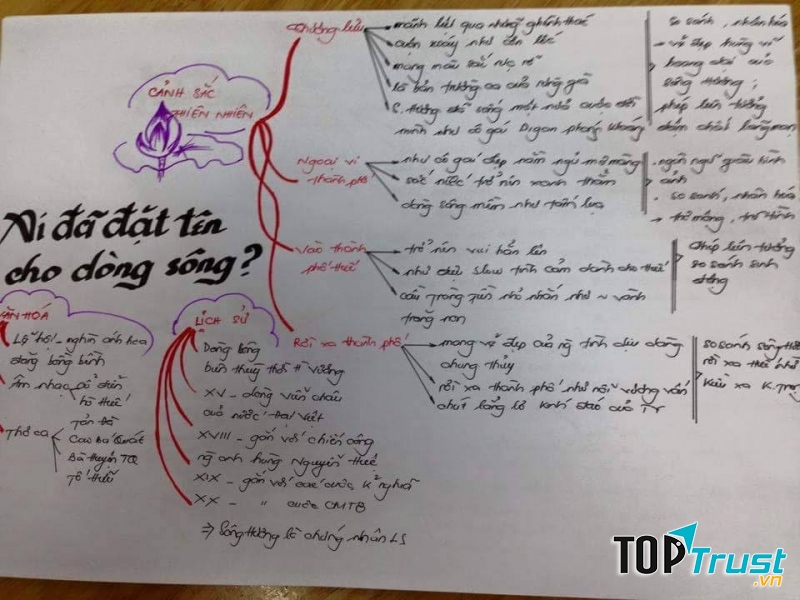 CẢNH SẮC
THIÊN NHIÊN
Thượng lưu
mãnh liệt qua những ghềnh thác
cuộn xoáy như cơn lốc
mang màu sắc rực rỡ
là bản trường ca của rừng già
S. Hương đã sống một nửa cuộc đời
mình như cô gái Digan phóng khoáng
so sánh, nhân hóa
→ vẻ đẹp hùng vĩ
hoang dại của
sông Hương;
phép liên tưởng
đậm chất lãng mạn
Ngoại vi
thành phố
như cô gái đẹp nằm ngủ mơ màng
sắc nước trở nên xanh thẳm
dòng sông mềm như tấm lụa
. ngôn ngữ giàu hình
ảnh
. so sánh, nhân hóa
→ thơ mộng, trữ tình
Vào thành
phố Huế
trở nên vui hẳn lên
như điệu slow tình cảm dành cho Huế
cầu Tràng Tiền nhỏ nhắn như ~ vành
trăng non
phép liên tưởng
so sánh sinh
động
Rời xa thành phố
mang vẻ đẹp của ng tình dịu dàng
chung thủy
rời xa thành phố như nỗi vương vấn
chút lẳng lơ kín đáo của TY
so sánh sông
rời xa Huế như
Kiều xa K. Trọng
Ai đã đặt tên
cho dòng sông?
VĂN HÓA
Lễ hội - nghìn ánh hoa
đăng bồng bềnh
Âm nhạc
cổ điển
hò Huế
Thơ ca
Tản Đà
Cao Bá Quát
Bà Huyện TQ
Tố Hữu
LỊCH SỬ
Dòng sông
biên thùy thời Hùng Vương
XV - dòng viễn châu
của nước Đại Việt
XVIII - gắn với chiến công
ng anh hùng Nguyễn Huệ
XIX - gắn với các cuộc k/nghĩa
XX - " cuộc CMT8
⇒ Sông Hương là chứng nhân LS
TOPTrust
.vn